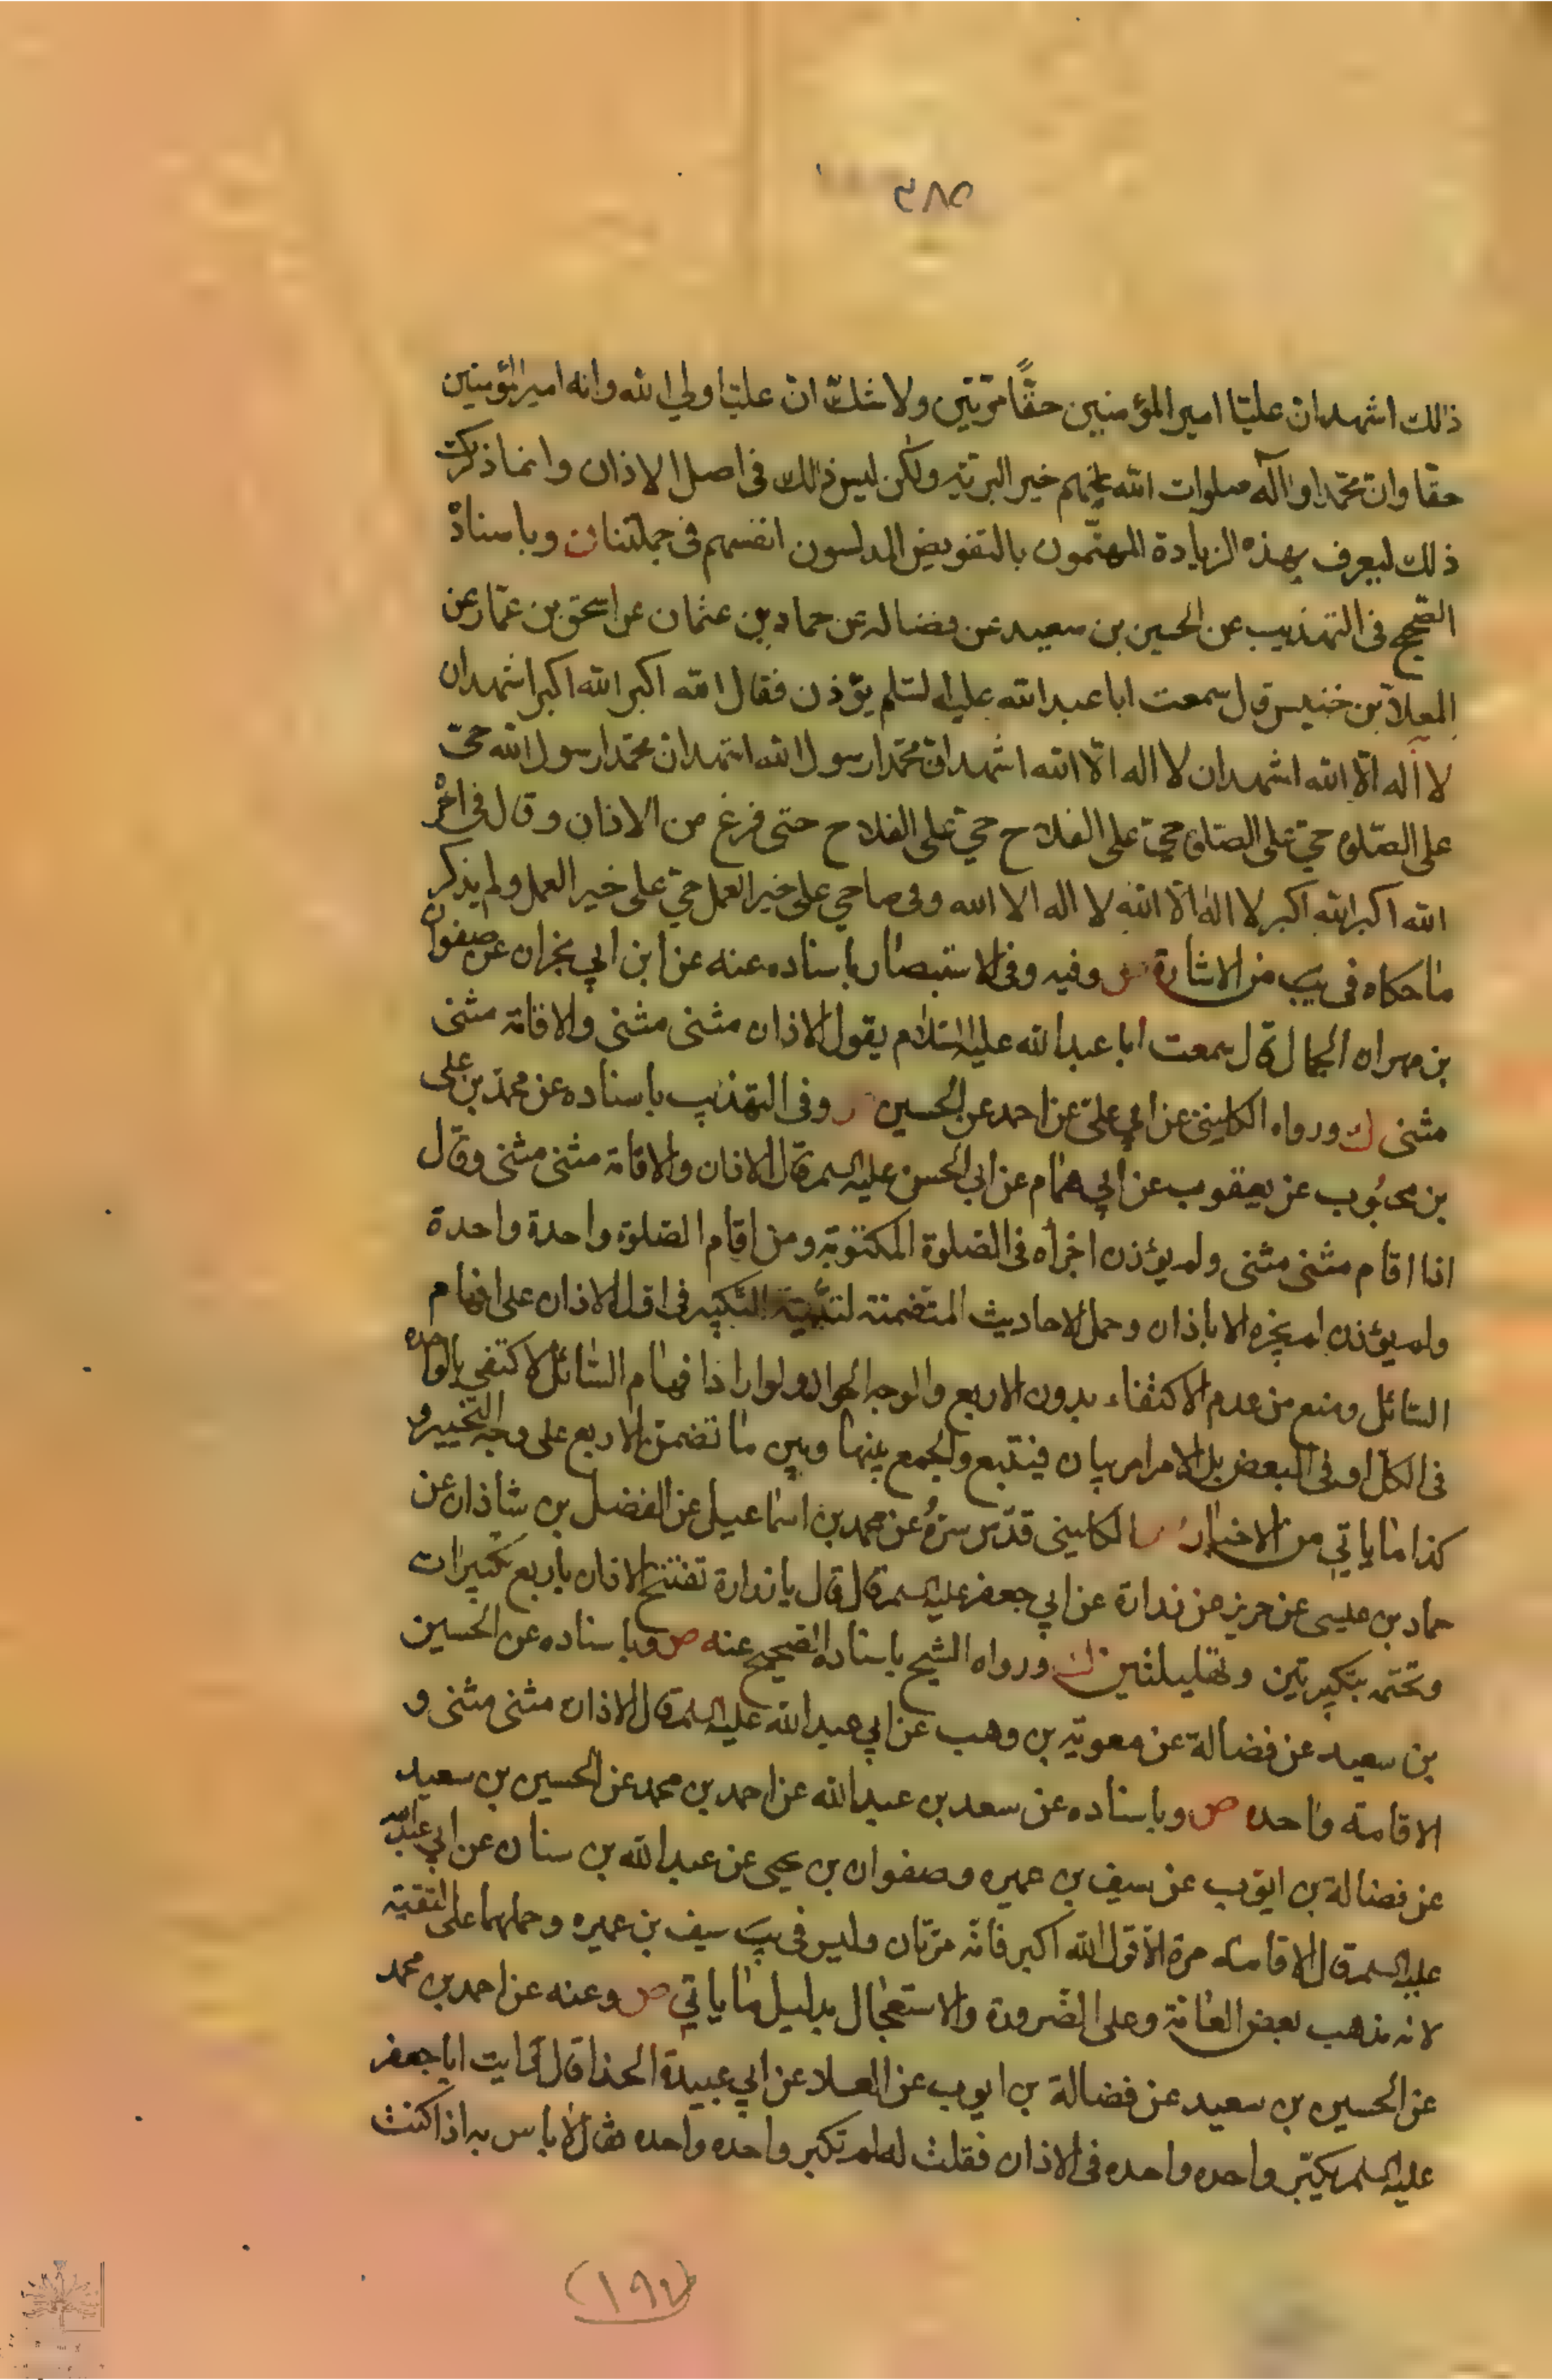 ٣٨٥
ذلك اشهد ان عليّا امير المؤمنين حقًّا مرّتين ولا شكّ انّ عليّا ولي الله وانه امير المؤمنين
حقا وان محمّدا وآله صلوات الله عليهم خير البريّه ولكن ليس ذلك في اصل الاذان وانما ذكرت
ذلك ليعرف بهذه الزيادة المهتّمون بالتفويض المدلسون انفسهم في جملتنا وباسناده
الصّحيح في التهذيب عن الحسين بن سعيد عن فضاله عن حماد بن عثمان عن اسحق بن عمّار عن
المعلا بن خنيس قال سمعت ابا عبدالله عليه السلم يؤذن فقال الله اكبر الله اكبر اشهد ان
لا اله الّا الله اشهد ان لا اله الّا الله اشهد انّ محمّدا رسول الله اشهد ان محمّدا رسول الله حيّ
على الصّلوة حيّ على الصّلوة حيّ على الفلاح حيّ على الفلاح حتى فرغ من الاذان وقال في اخره
الله اكبر الله اكبر لا اله الّا الله لا اله الا الله وفي صا حي على خير العمل حيّ على خير العمل ولم يذكر
ما حكاه في يب من الاشارة ص وفيه وفي الاستبصار باسناده عنه عن ابن ابي نجران عن صفوان
بن مهران الجمال قال سمعت ابا عبدالله عليه السّلام يقول الاذان مثنى مثنى والاقامة مثنى
مثنى ك ورواه الكليني عن ابي عليّ عن احمد عن الحسين وفي التهذيب باسناده عن محمد بن علي
بن محبُوب عن يعقوب عن ابي همّام عن ابي الحسن عليه السلم قال الاذان والاقامة مثنى مثنى وقال
اذا اقام مثنى مثنى ولم يؤذن اجزأه في الصّلوة المكتوبة ومن اقام الصّلوة واحدة واحدة
ولم يؤذن لم يجزه الا باذان وحمل الاحاديث المتضمنة لتثنية التّكبير في اوّل الاذان على افهام
السّائل ومنع من عدم الاكتفاء بدون الاربع والوجه الجواز ولو اراد افهام السّائل لاكتفى بالواحده
في الكلّ او في البعض بل الامر امر بيان فيتّبع والجمع بينها وبين ما تضمن الاربع على وجه التّخيير و
كذا ما ياتي من الاخبار الكليني قدّس سرّهُ عن محمد بن اسماعيل عن الفضل بن شاذان عن
حماد بن عليسى عن حريز عن زرارة عن ابي جعفر عليه السلم قال قال يا زرارة تفتتح الاذان باربع تكبيرات
وتختمه بتكبيرتين وتهليلتين ورواه الشيخ باسناده الصّحيح عنه ص وباسناده عن الحسين
بن سعيد عن فضالة عن معويّه بن وهب عن ابي عبدالله عليه السلم قال الاذان مثنى مثنى و
الاقامة واحده ص وباسناده عن سعد بن عبدالله عن احمد بن محمد عن الحسين بن سعيد
عن فضالة بن ايّوب عن سيف بن عميره وصفوان بن يحيى عن عبدالله بن سنان عن ابي عبدالله
عليه السلم قال الاقامة مرة الّا قول الله اكبر فانّه مرّتان وليس في يب سيف بن عميره وحملهما على التقية
لانه مذهب بعض العامّة وعلى الضّرورة والاستعجال بدليل ما ياتي ص وعنه عن احمد بن محمد
عن الحسين بن سعيد عن فضالة بن ايوب عن العلا عن ابي عبيدة الحذا قال رايت ابا جعفر
عليه السلم يكبّر واحده واحده في الاذان فقلت له لم تكبر واحده واحده فقال لا باس به اذا كنت
(١٩٧)